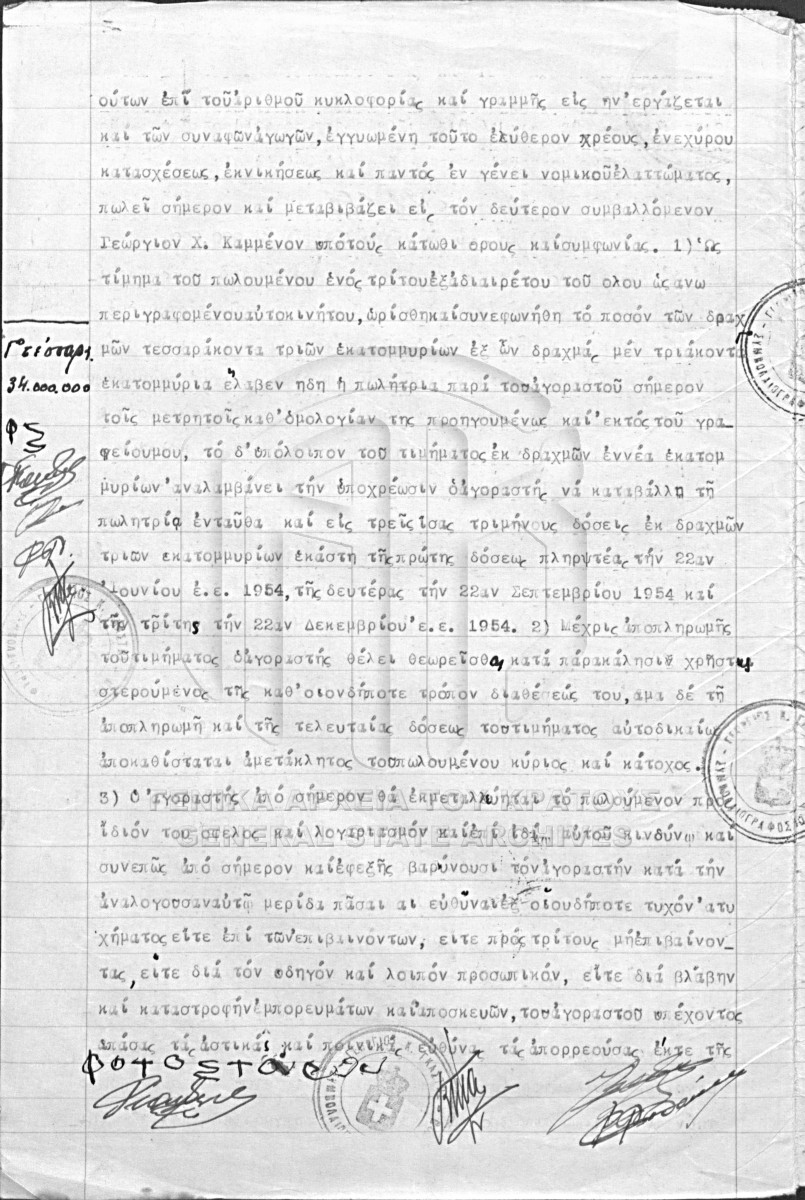 ούτων ἐπί τοῦἀριθμοῦ κυκλοφορίας καί γραμμῆς εἰς ην'ἐργάζεται
καί τῶν συναφῶνἀγωγῶν,ἐγγυωμένη τοῦτο ἐλύθερον χρέους,ἐνεχύρου
κατασχέσεως,ἐκνικήσεως καί παντός ἐν γένει νομικοῦἐλαττώματος,
πωλεῖ σήμερον καί μεταβιβάζει εἰς τόν δεύτερον συμβαλλόμενον
Γεώργιον Χ. Καμμένον ὑπότούς κάτωθι ορους καίσυμφωνίας. 1)Ὡς
τίμημα τοῦ πωλουμένου ἑνός τρίτουἐξἀδιαιρέτου τοῦ ολου ὡς ανω
περιγραφομένουαὐτοκινήτου,ὡρίσθηκαίσυνεφωνήθη τό ποσόν τῶν δραχ
μῶν τεσσαράκοντα τριῶν ἑκατομμυρίων ἐξ ὧν δραχμάς μέν τριάκοντα
ἑκατομμύρια ἔλαβεν ηδη ἡ πωλήτρια παρά τοῦἀγοραστοῦ σήμερον
τοῖς μετρητοῖς καθ'ὁμολογίαν της προηγουμένως καί'εκτός τοῦ γρα_
φείουμου, τό δ'ὑπόλοιπον τοῦ τιμήματος ἐκ δραχμῶν ἐννέα ἑκατομ
μυρίων'αναλαμβάνει τήν ὑποχρέωσιν ὁἀγοραστής νά καταβάλλη τῆ
πωλητρίᾳ ἐνταῦθα καί εἰς τρεῖς ἴσας τριμήνους δόσεις ἐκ δραχμῶν
τριῶν εκατομμυρίων ἑκάστη τῆς πρώτης δόσεως πληρωτέας τήν 22αν
Ἰουνίου ἐ.ε. 1954,τῆς δευτέρας τήν 22αν Σεπτεμβρίου 1954 καί
τῆς τρίτης τήν 22αν Δεκεμβρίου'ε.ε. 1954. 2) Μέχρις ἀποπληρωμῆς
τοῦτιμήματος ὁἀγοραστής θέλει θεωρεῖσθαι κατά παράκλησιν χρήστης
στερούμενος τῆς καθ'οιονδήποτε τρόπον διαθέσεώς του,ἁμα δέ τῆ
ἀποπληρωμῆ καί τῆς τελευταίας δόσεως τοῦτιμήματος αὐτοδικαίως
ἀποκαθίσταται ἀμετάκλητος τοῦπωλουμένου κύριος καί κάτοχος.
3) Ο ἀγοραστής ἀπό σήμερον θά ἐκμεταλλεύηται τό πωλούμενον πρός
ἴδιόν του οφελος καί λογαριασμόν καίἐπί ἰδίῳ αὐτοῦ κινδύνῳ καί
συνεπῶς ἀπό σήμερον καίἐφεξῆς βαρύνουσι τόνἀγοραστήν κατά τήν
ἀναλογοῦσαναὐτῷ μερίδα πᾶσαι αι εὐθῦναιἐξ οἱουδήποτε τυχόν'ατυ
χήματος εἴτε ἐπί τῶν'επιβαινόντων, εἴτε πρός τρίτους μήἐπιβαίνον_
τας, εἴτε διά τόν ὁδηγόν καί λοιπόν προσωπικόν, εἴτε διά βλάβην
καί καταστροφήν ἐμπορευμάτων καίἀποσκευῶν,τοῦἀγοραστοῦ ὑπέχοντος
ἁπάσας τάς ἀστικάς καί ποινικάς εὐθύνας τάς ἀπορρεούσας ἐκτε τῆς
34.000.000
ΓΕΝΙΚΑ ΑΡΧΕΙΑ ΤΟΥ ΚΡΑΤΟΥΣ
GENERAL STATE ARCHIVES